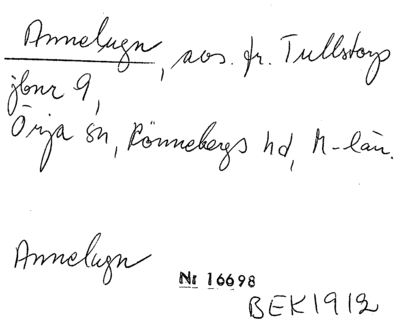 Annelugn, avs. fr. Tullstorp
jbnr 9,
Örja sn, Rönnebergs hd, M-län.
Annelugn
Nr 16698
BEK 1912